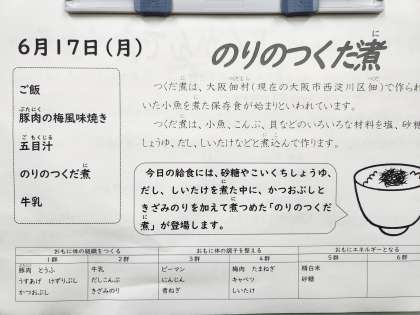 6月17日(月)
のりのつくだ煮
に
ご飯
ぶたにく
豚肉の梅風味焼き
ごもくじる
五目汁
に
のりのつくだ煮
牛乳
つくだ煮は、大阪佃村(現在の大阪市西淀川区佃)で作られ
いた小魚を煮た保存食が始まりといわれています。
つくだ煮は、小魚、こんぶ、貝などのいろいろな材料を塩、砂糖
しょうゆ、だし、しいたけなどと煮込んで作ります。
今日の給食には、砂糖やこいくちしょうゆ、
だし、しいたけを煮た中に、かつおぶしと
きざみのりを加えて煮つめた「のりのつくだ
煮」が登場します。
おもに体の組織をつくる おもに体の調子を整える おもにエネルギーとなる
1群 2群 3群 4群 5群 6群
豚肉 とうふ 牛乳 ピーマン 梅肉 たまねぎ 精白米
うすあげ けずりぶし だしこんぶ にんじん キャベツ 砂糖
かつおぶし きざみのり 青ねぎ しいたけ